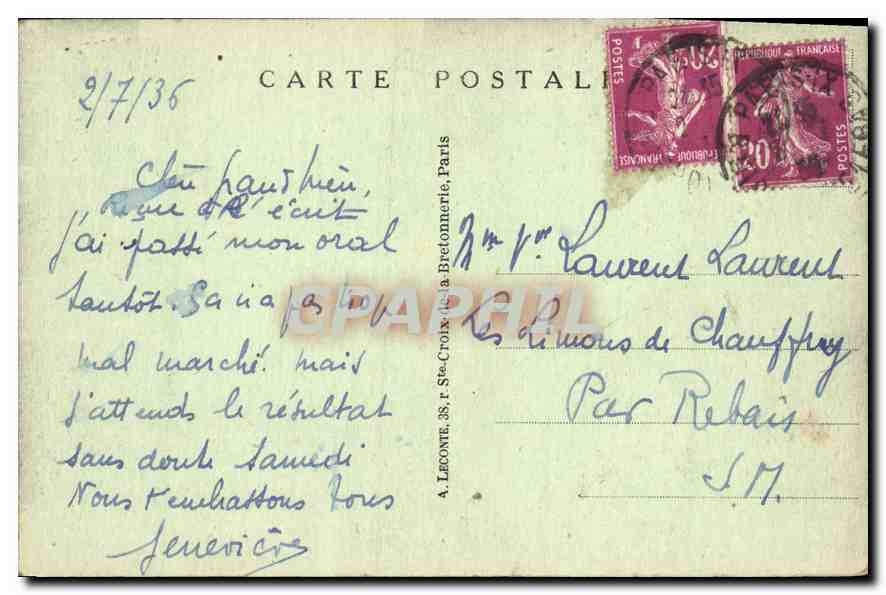 CARTE POSTALE
2/7/36
Chère grand'mère,
j'ai passé mon oral
tantôt. Ça n'a pas trop
mal marché. mais
j'attends le résultat
sans doute Samedi
Nous t'embrassons tous
Geneviève
A. LECONTE, 38, r Ste-Croix-de-la-Bretonnerie, Paris
CPAPHIL
POSTES
20c
REPUBLIQUE FRANÇAISE
REPUBLIQUE FRANÇAISE
20
POSTES
PARIS IX
Mme Vve Laurent Laurent
Les Limons de Chauffry
Par Rebais
S M.